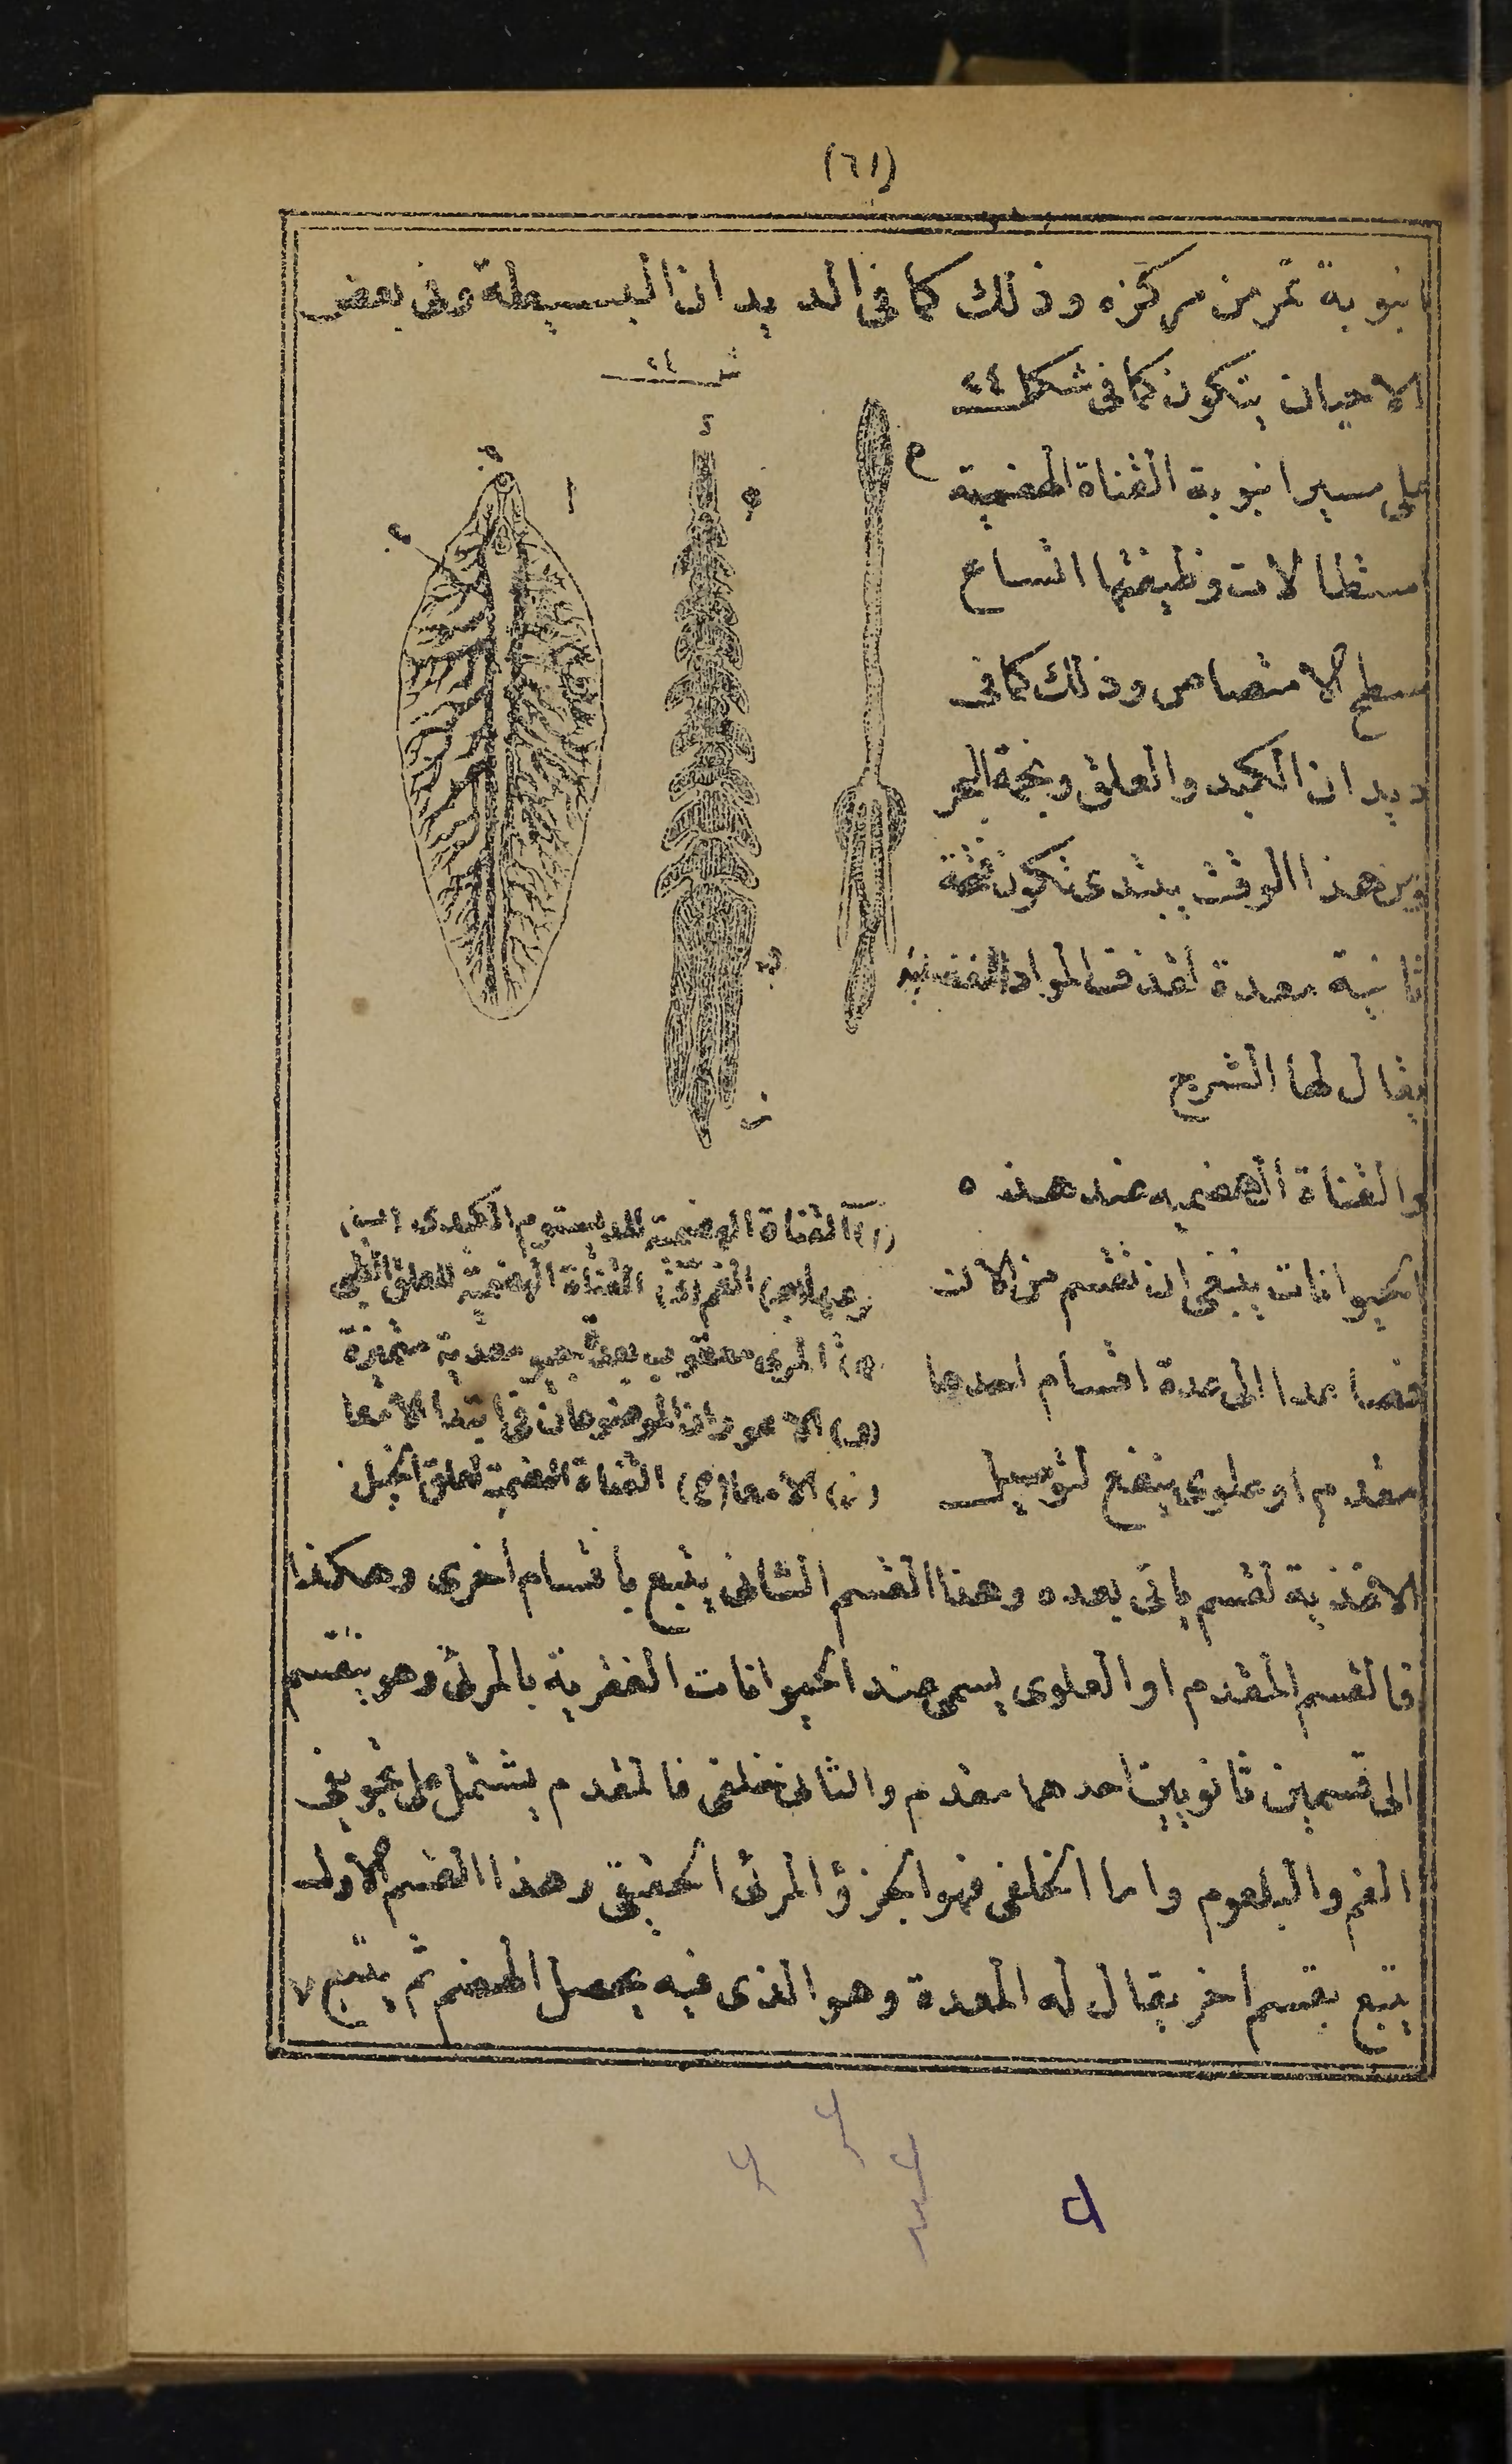 (٦١)
انبوبة تمر من مركزه وذلك كما فى الديدان البسيطة وفى بعض
الاحيان يتكون كما فى شكل ٤٤
على سير انبوبة القناة الهضمية
استطالات وظيفتها اتساع
سطح الامتصاص وذلك كما فى
ديدان الكبد والعلق ونجمة البحر
ومن هذا الوقت يبتدى تكون فتحة
ثانية معدة لقذف المواد الفضلية
يقال لها الشرج
والقناة الهضميه عند هذه
الحيوانات ينبغى ان تقسم من الان
فصاعدا الى عدة اقسام احدها
مقدم او علوى ينفع لتوصيل
شـ ٤٤
ا
د
ه
م
ز
(ا) القناة الهضمية للديستوم الكبدى (ب)
الفم القناة الهضمية للعلق الطبى
المرى معقوب بعدة جيوب معدية متميزة
(و) الاعوران الموضوعان فى ابتدا الامعا
(ز) الامعا (ح) القناة الهضمية لعلق الخيل
الاغذية لقسم ياتى بعده وهذا القسم الثانى يتبع باقسام أخرى وهكذا
فالقسم المقدم او العلوى يسمى عند الحيوانات الفقرية بالمرئ وهو ينقسم
الى قسمين ثانويين احدهما مقدم والثانى خلفى فالمقدم يشتمل على تجويفى
الفم والبلعوم واما الخلفى فهو الجزؤ المرئى الحقيقى وهذا القسم الاول
يتبع بقسم اخر يقال له المعدة وهو الذى فيه يحصل الهضم ثم يتبع